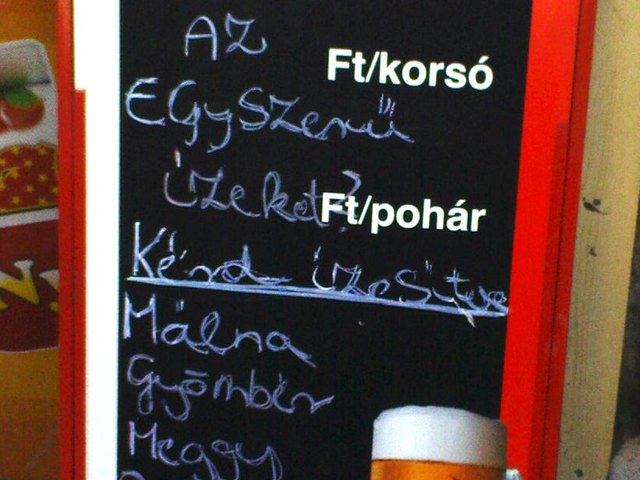 AZ
Ft/korsó
EGYSZERŰ
ízeket?
Ft/pohár
Kérd ízesítve
Málna
Gyömbér
Meggy